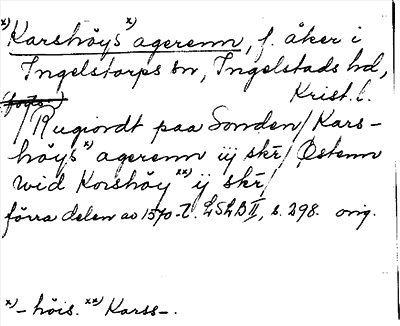 x) Karshöÿs x) agerenn, f. åker i
Ingelstorps sn, Ingelstads hd,
Krist. l.
/Rugiordt paa Sonden/Kars-
höÿs x) agerenn iij skr/ Østenn
wid Korshöÿ xx) ij skr/
förra delen av 1570-t. LSLB II, s. 298. orig.
x) - höis. xx) Karss-.